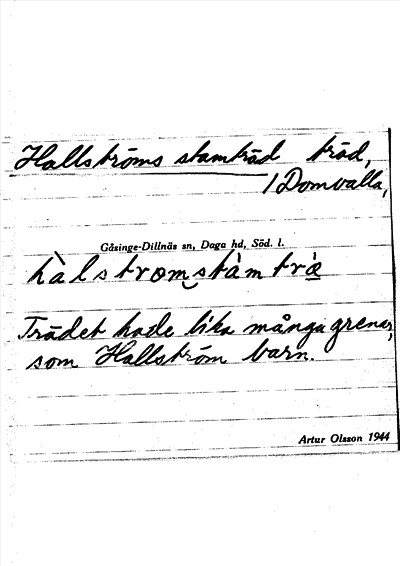 Hallströms stamträd träd,
/ Domvalla,
Gåsinge-Dillnäs sn, Daga hd, Söd. l.
hàlstromstàmtræ̀
Trädet hade lika många grenar,
som Hallström barn.
Artur Olsson 1944